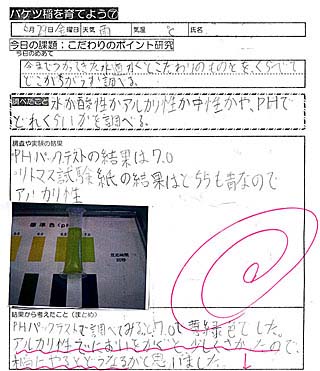 バケツ稲を育てよう⑦
6月29日金曜日 天気 雨 気温 ℃ 氏名
今日の課題：こだわりのポイント研究
今日のめあて
今までつかってきた水道水とこだわりのものとをくらべて
どこがちがうか調べる。
調べたこと 水か酸性かアルカリ性か中性かや、PHで
どれくらいかを調べる。
調査や実験の結果
PHパックテストの結果は7.0
リトマス試験紙の結果はどちらも青なので
アルカリ性
標準色(pH
結果から考えたこと（まとめ）
PHパックテストで調べてみると7.0で黄緑色でした。
アルカリ性でにおいをかぐと少しくさかったので、
稲にやるとどうなるかと思いました。